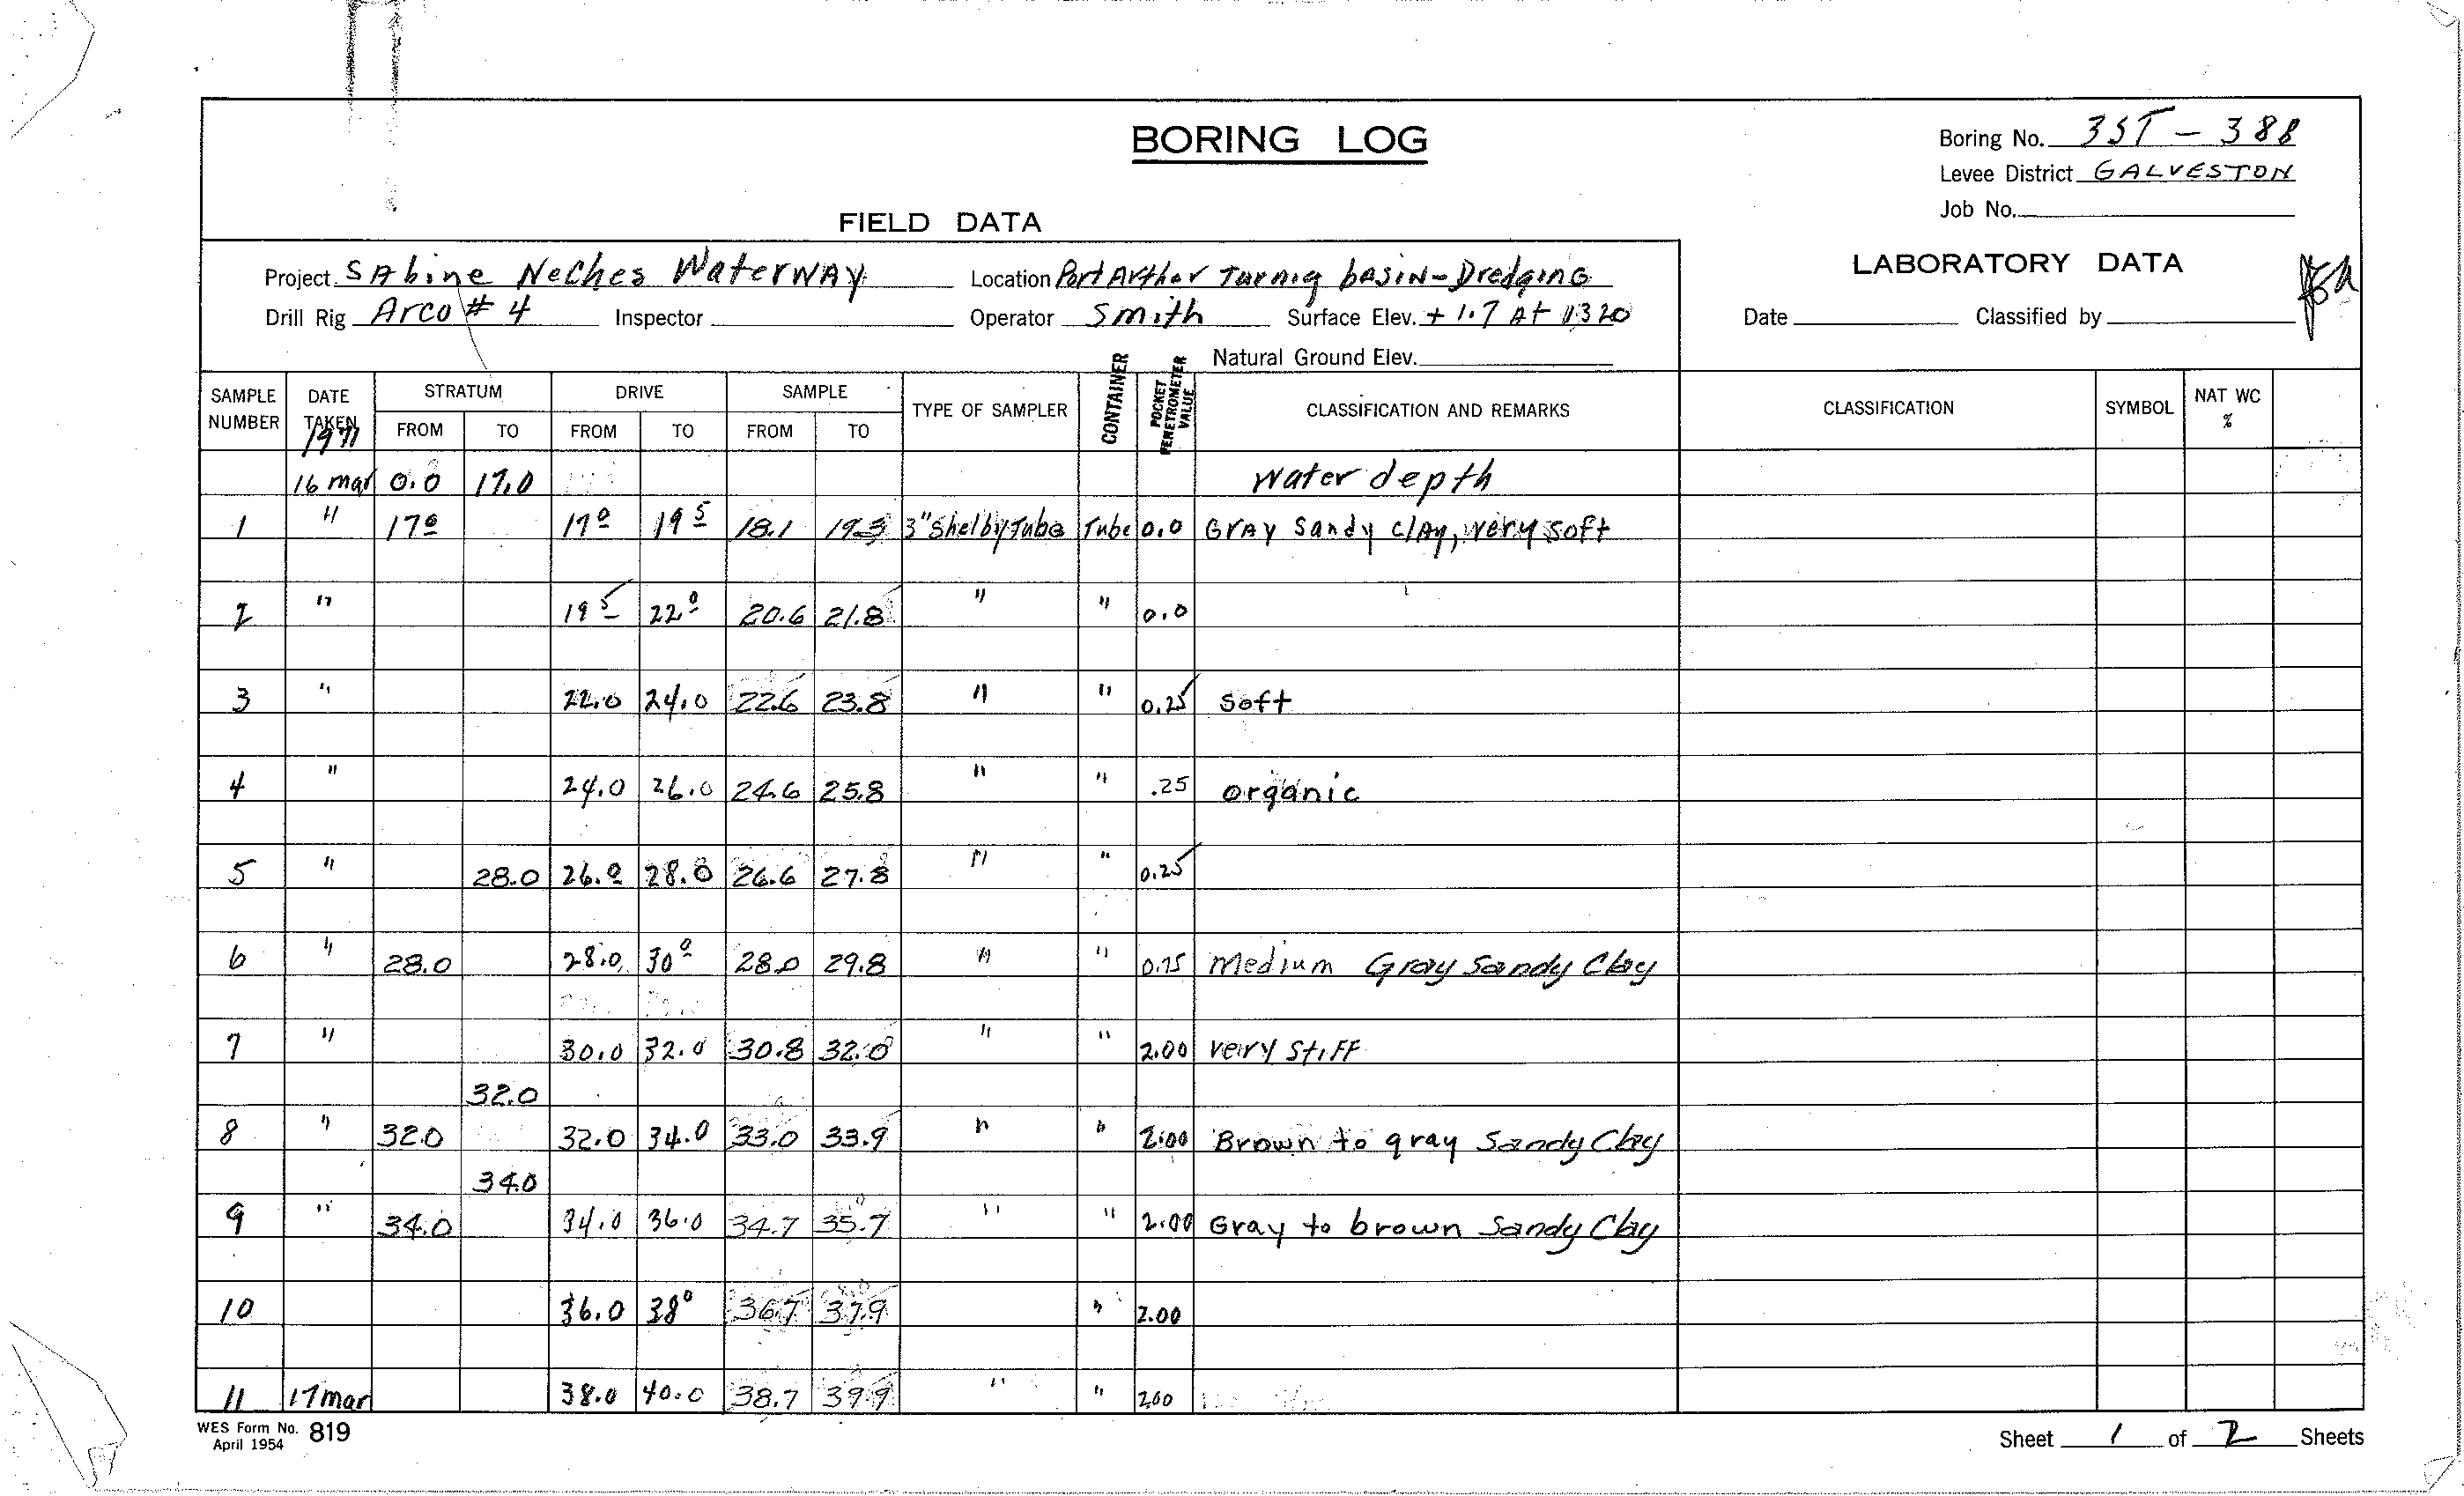 BORING LOG
Boring No. 3ST - 388
Levee District GALVESTON
Job No.
FIELD DATA
LABORATORY DATA
Project SAbine Neches WaterwAy Location Port Arthor Turnig bAsiN-DredgiNG
Drill Rig Arco # 4 Inspector Operator Smith Surface Elev. + 1.7 At 1320
Date Classified by
Natural Ground Elev.
SAMPLE NUMBER DATE TAKEN 1971 STRATUM FROM TO DRIVE FROM TO SAMPLE FROM TO TYPE OF SAMPLER CONTAINER POCKET PENETROMETER VALUE CLASSIFICATION AND REMARKS CLASSIFICATION SYMBOL NAT WC %
16 mar 0.0 17.0 Water depth
1 " 17 0 17 0 19 5 18.1 19.3 3" Shelby Tube Tube 0.0 GrAy Sandy clAy, very soft
2 " 19 5 22 0 20.6 21.8 " " 0.0
3 " 22.0 24.0 22.6 23.8 " " 0.25 Soft
4 " 24.0 26.0 24.6 25.8 " " .25 organic
5 " 28.0 26.0 28.0 26.6 27.8 " " 0.25
6 " 28.0 28.0 30 0 28.0 29.8 " " 0.75 medium Gray Sandy Clay
7 " 30.0 32.0 30.8 32.0 " " 2.00 very stiff
32.0
8 " 32.0 32.0 34.0 33.0 33.9 " " 2.00 Brown to gray Sandy Clay
34.0
9 " 34.0 34.0 36.0 34.7 35.7 " " 2.00 Gray to brown Sandy Clay
10 36.0 38 0 36.7 37.9 " 2.00
11 17 mar 38.0 40.0 38.7 39.9 " " 2.00
WES Form No. 819
April 1954
Sheet 1 of 2 Sheets